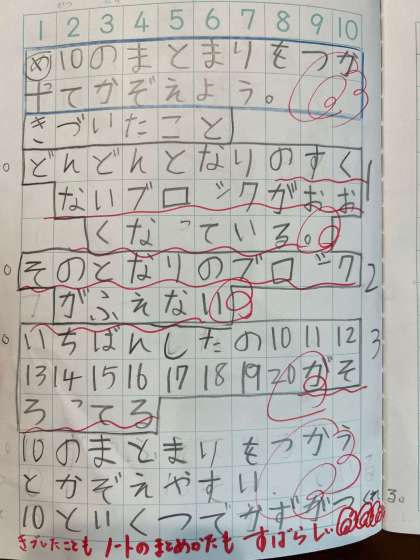 1 2 3 4 5 6 7 8 9 10
め 10のまとまりをつか
ってかぞえよう。
きづいたこと
どんどんとなりのすく 1
ないブロックがおお
くなっている。
そのとなりのブロック 2
がふえない。
いちばんしたの10 11 12 3
13 14 15 16 17 18 19 20がそ
ろってる
10のまとまりをつかう
とかぞえやすい
10といくつでかずがつくれる。
きづいたことも ノートのまとめかたも すばらしい